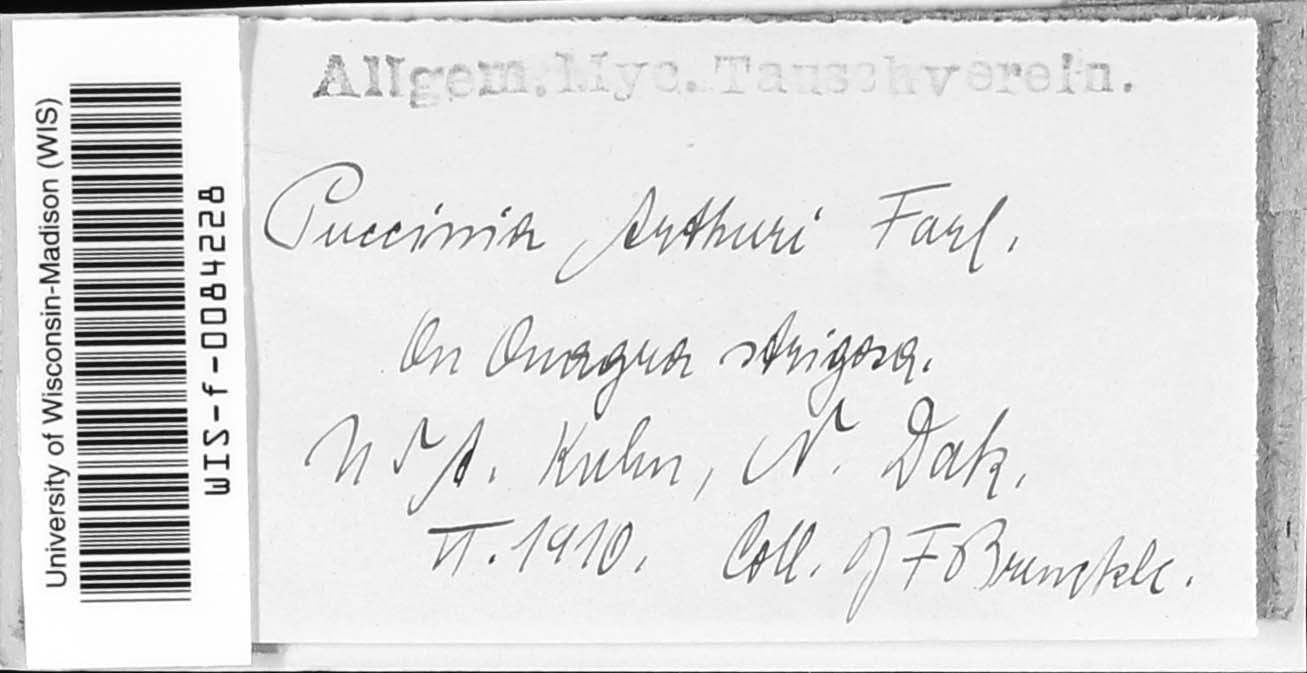 Allgem. Myc. Tauschverein.
Puccinia Arthuri Farl.
On Onagra strigosa.
USA. Kulm, N. Dak.
VI. 1910. Coll. J F Brenckle.
University of Wisconsin-Madison (WIS)
WIS-f-0084228